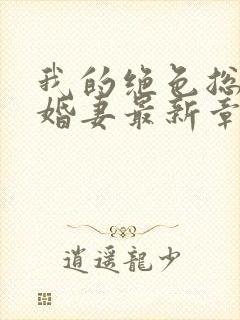 我的绝色总
婚妻最新章
逍遥龍少